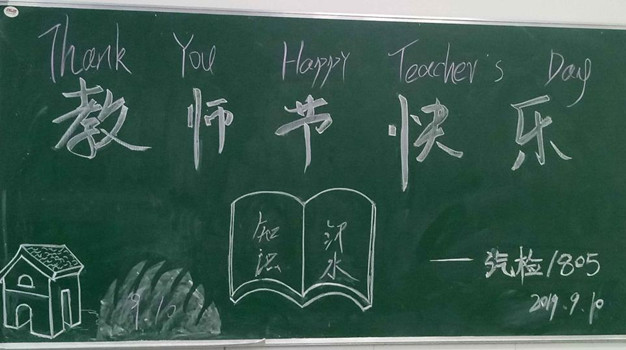 Thank You Happy Teacher's Day
教师节快乐
知识
汗水
一汽检1805
2019.9.10
9.10